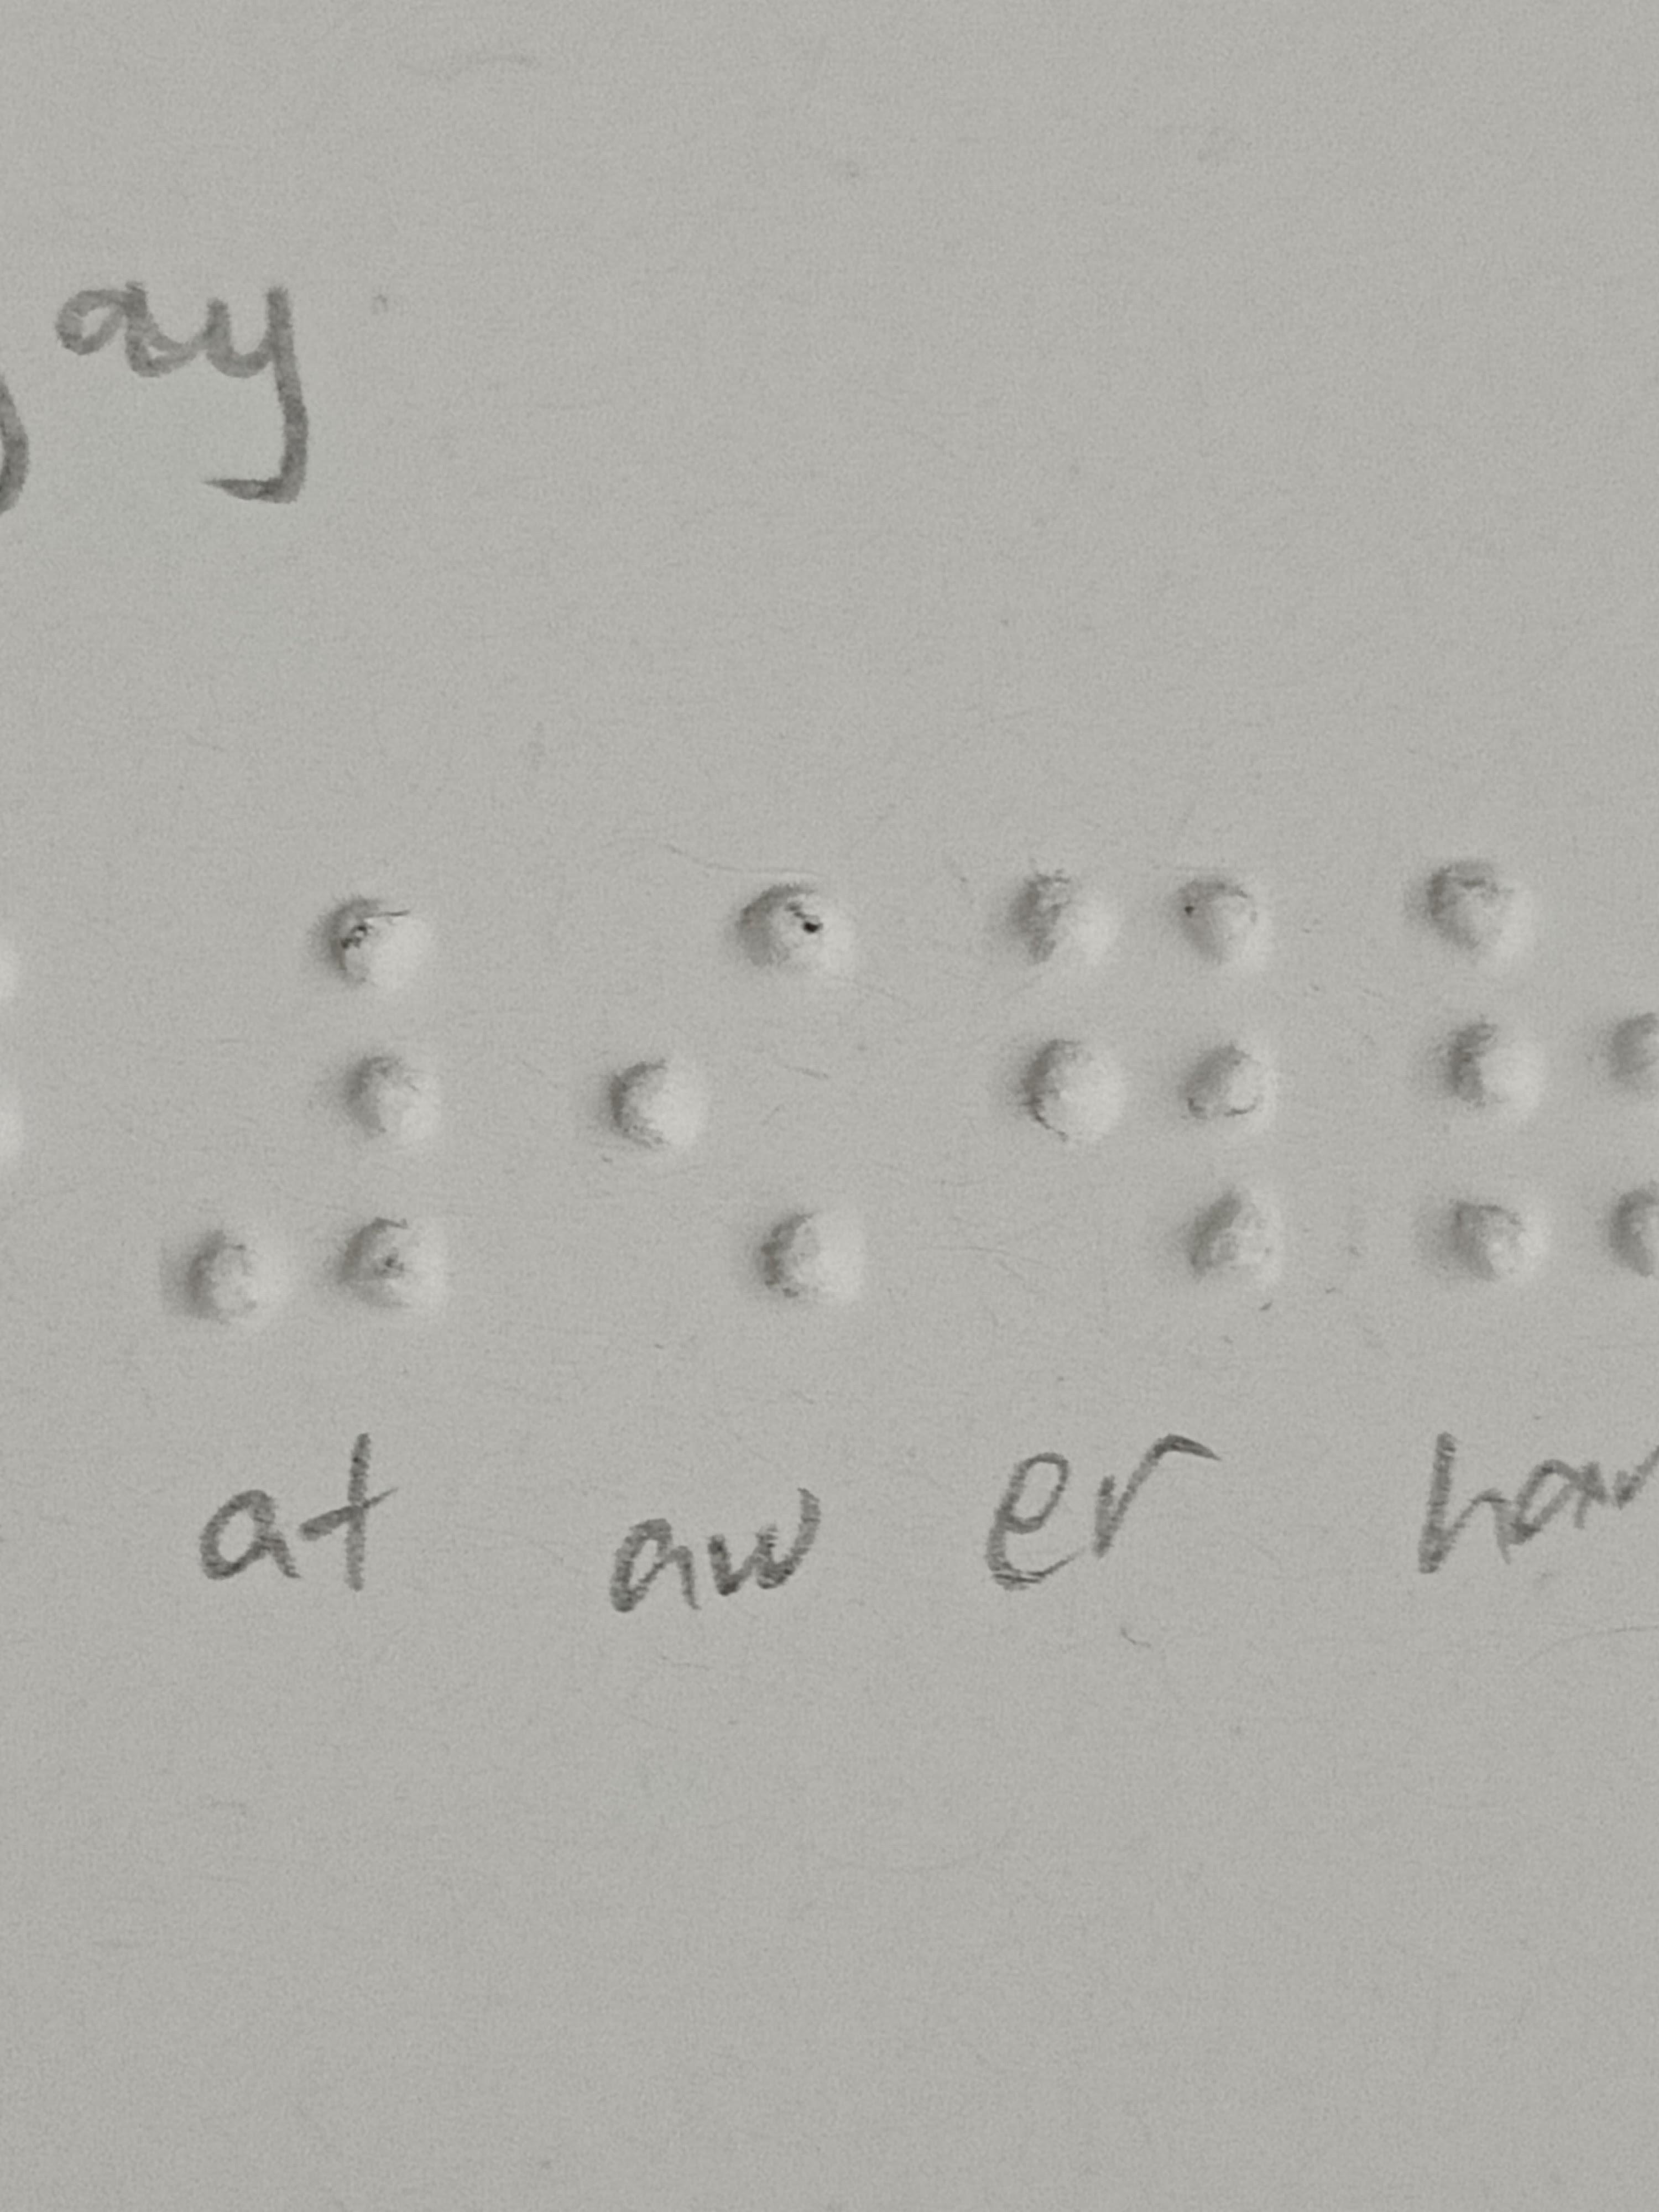 ay
⠼⠪⠻⠷
at aw er